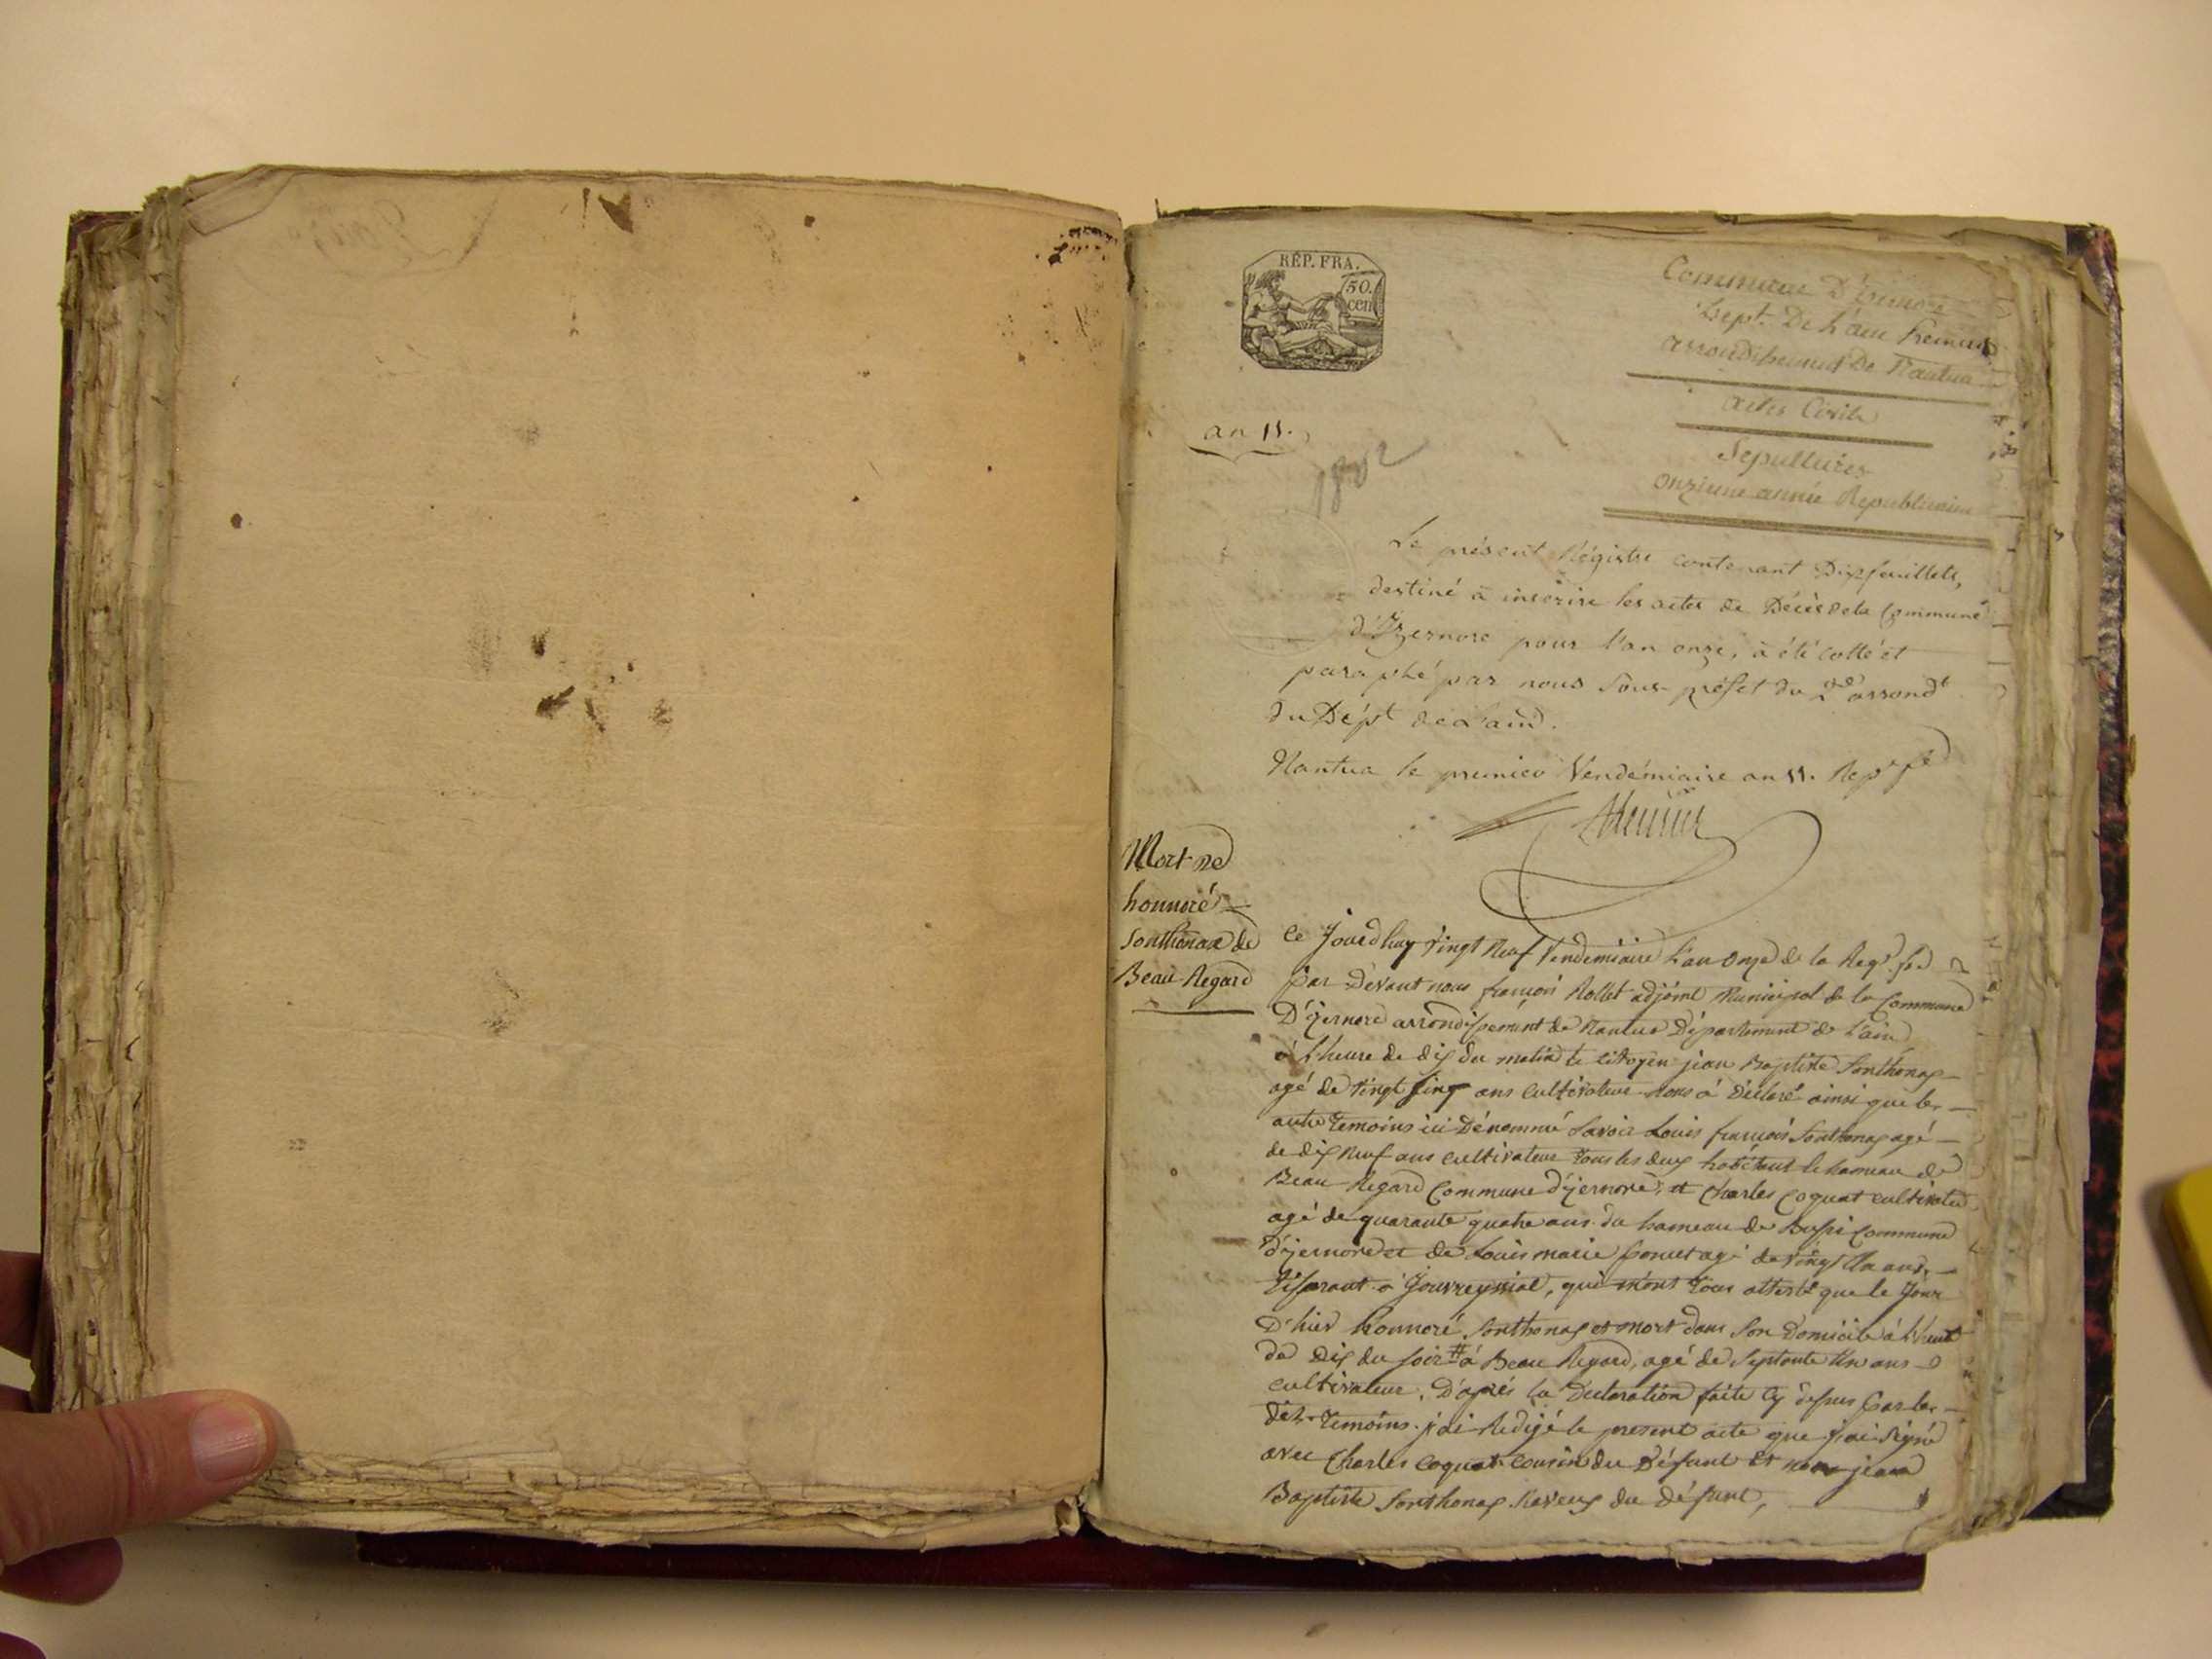 REP. FRA.
50.
cen
Commune D'izernore
Dept. De L'ain
arrondissement De Nantua
actes Civils
Sepultures
onzieme année Republicaine
an 11.
1802
Le présent Régistre contenant Dix feuillets,
destiné à inscrire les actes de Décès de la Commune
d'Izernore pour l'an onze, à été cotté et
paraphé par nous Sous-préfet du 2de arrondt
du Dépt de L'ain.
Nantua le premier Vendémiaire an 11. Rep. fe
Mort de
honnoré
Sonthonax de
Beau-Regard
Ce Jourdhuy vingt Neuf Vendemiaire L'an Onze de la Rep. fse
par Devant nous françois Rollet adjoint Municipal de la Commune
D'izernore arrondissement de Nantua Département de L'ain
à L'heure de dix du matin le citoyen jean Baptiste Sonthonax
agé de vingt cinq ans cultivateur nous à Déclaré ainsi que les
autre temoins ici Dénommé Savoir Louis françois Sonthonax agé
de dix Neuf ans cultivateur tous les deux habitant le hameau de
Beau Regard Commune d'izernore, et Charles Coquat cultivateur
agé de quarante quatre ans du hameau de Bussi Commune
d'izernore et de Louis marie agé de vingt Un ans,
tisserant à, qui m'ont tous attesté que le Jour
D'hier honnoré Sonthonax et mort dans Son Domicile à L'heure
de Dix du Soir # à Beau Regard, agé de Septante Un ans
cultivateur. D'après la Déclaration faite Cy dessus par les
dit temoins. j'ai Redigé le present acte que j'ai Signé
avec Charles Coquat cousin du Défunt et jean
Baptiste Sonthonax Neveux du défunt,